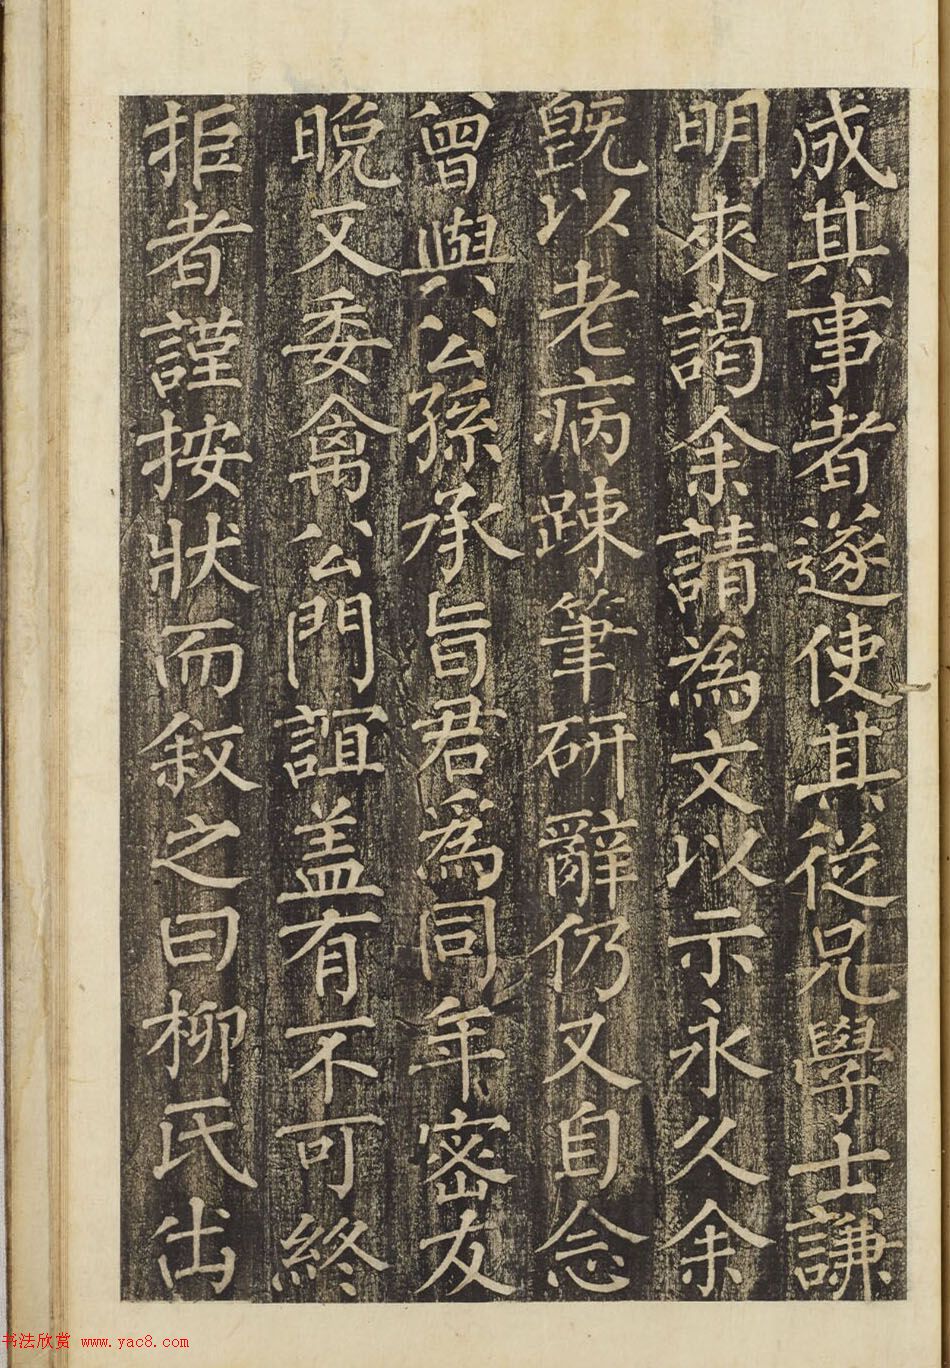 成其事者遂使其從兄學士謙
明來謁余請為文以示永久余
既以老病踈筆研辭仍又自念
曾與公孫承旨君為同年密友
晚又委禽公門誼盖有不可終
拒者謹按狀而叙之曰柳氏出
书法欣赏 www.yac8.com